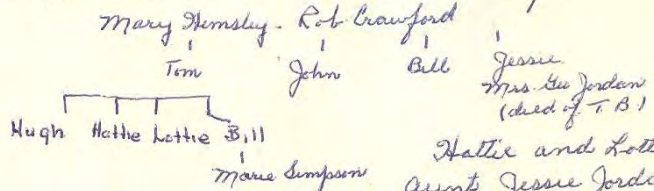 Mary Hemsley - Rob Crawford
Tom John Bill Jessie
Mrs. Geo Jordan
(died of T.B.)
Hugh Hattie Lottie Bill
Marie Simpson
Hattie and Lott
Aunt Jessie Jorda